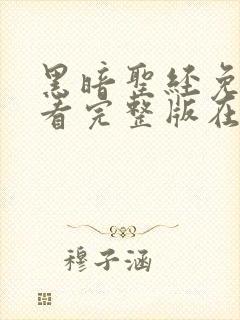 黑暗聖經免
看完整版在
穆子涵